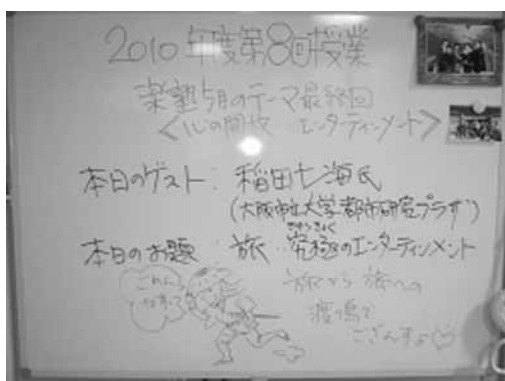 2010年度第8回授業
楽塾5月のテーマ最終回
<心の開放 エンターティンメント>
本日のゲスト: 稲田七海氏
(大阪市立大学都市研究プラザ)
きゅうきょく
本日のお題: 旅・究極のエンターティンメント
ごめんなすって
旅から旅への
渡り鳥で
ござんすよ♡